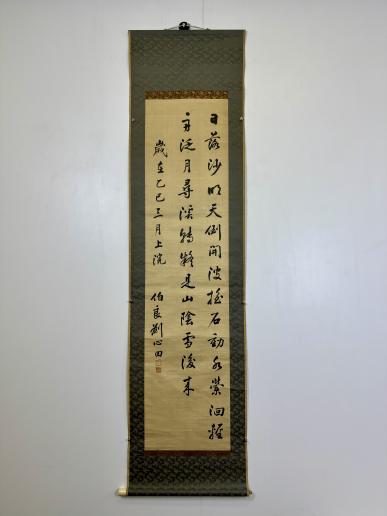 日落沙明天倒開波搖石動水縈洄輕
舟泛月尋溪轉疑是山陰雪後來
歲在乙巳三月上浣
伯良劉心田